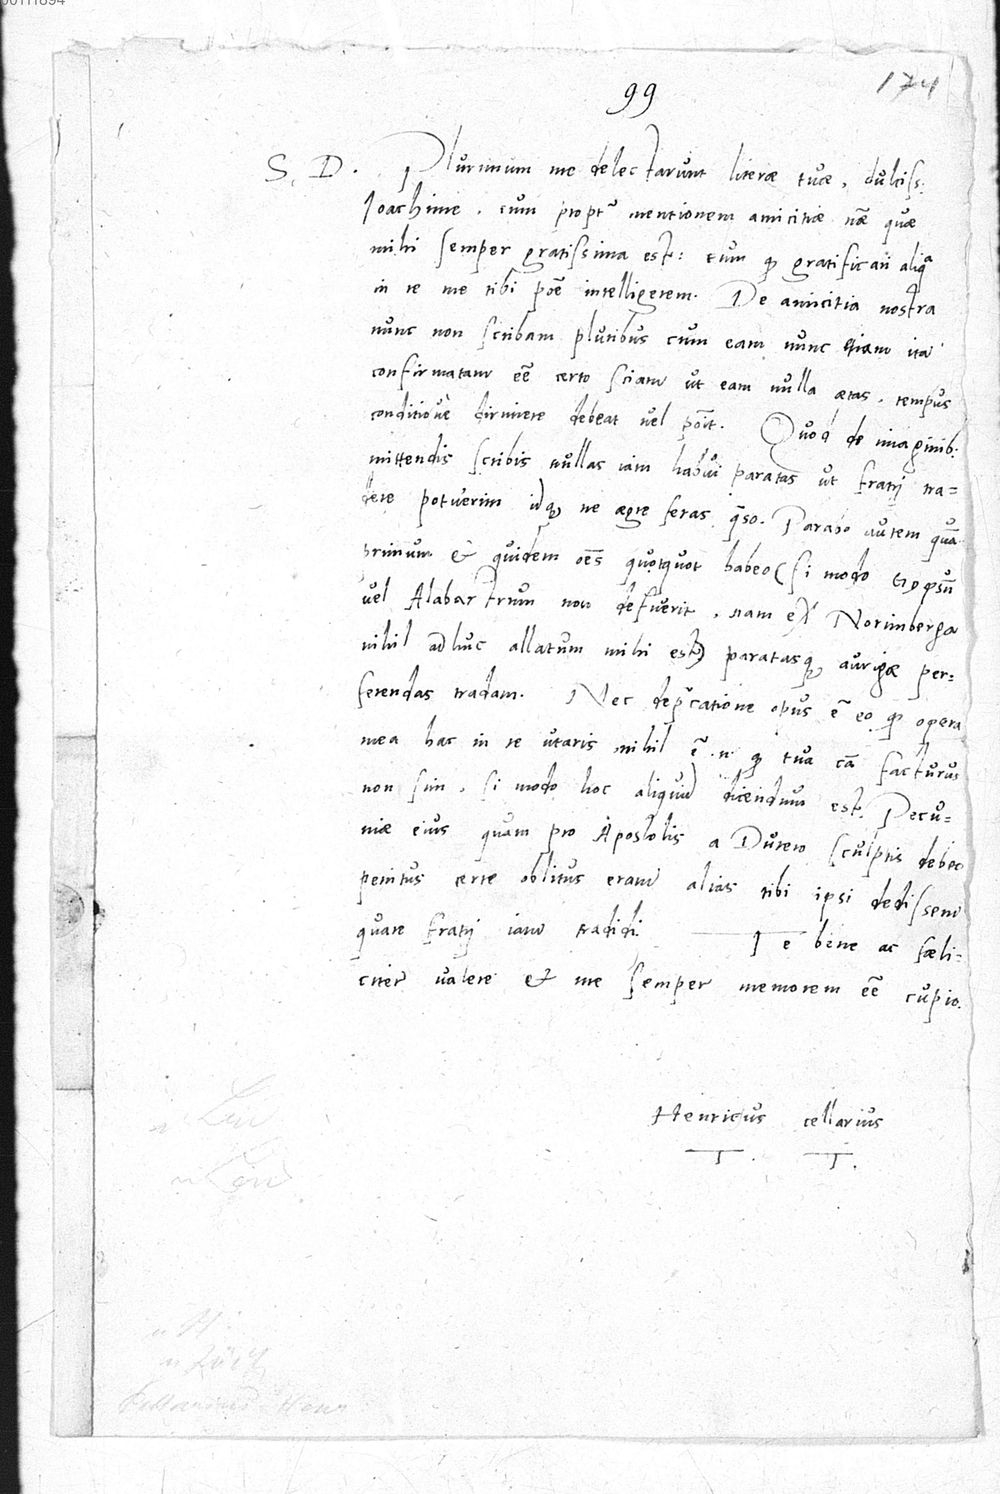 00111894
174
99
S. D. Plurimum me delectarunt literæ tuæ, dulciss.
Joachime. cum propt̃ mentionem amicitiæ nr̃æ quæ
mihi semper gratissima est: tum qꝫ gratificari aliqa
in re me tibi poẽ intelligerem. De amicitia nostra
nunc non scribam pluribus cum eam nunc etiam ita
confirmatam eẽ certo sciam ut eam nulla ætas, tempus
conditioue dirimere debeat uel põit. Quod de imaginib.
mittendis scribis nullas iam habui paratas ut fratri tra=
dere potuerim idqꝫ ne ægre feras q̃so. Parabo autem quã
primum & quidem oẽs quotquot habeo (si modo
uel Alabastrum non defuerit, nam ex Norimberga
nihil adhuc allatum mihi est) paratasqꝫ aurigæ per=
ferendas tradam. Nec dep̃catione opus ẽ eo qꝫ opera
mea hac in re utaris nihil ẽ .n. qꝫ tua cã facturus
non sim, si modo hoc aliquid dicendum est. Pecu=
niæ eius quam pro Apostolis a Durero sculptis debeo
penitus certe oblitus eram alias tibi ipsi dedissem
quare fratri iam tradidi. Te bene ac fæli=
citer ualere & me semper memorem eẽ cupio.
Henricus cellarius